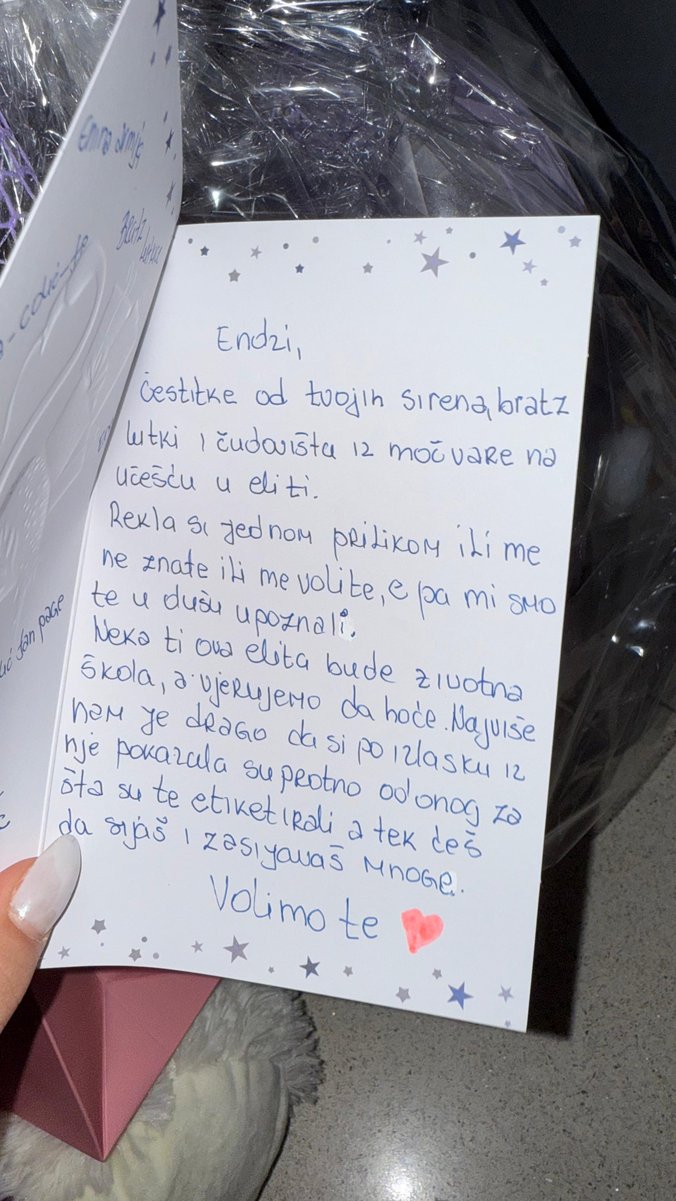 Endzi,
čestitke od tvojih sirena, bratz
lutki i čudovišta iz močvare na
učešću u eliti.
Rekla si jednom prilikom ili me
ne znate ili me volite, e pa mi smo
te u dušu upoznali.
Neka ti ova elita bude životna
škola, a vjerujemo da hoće. Najviše
nam je drago da si po izlasku iz
nje pokazala suprotno od onog za
šta su te etiketirali a tek ćeš
da sijaš i zasijavaš mnoge.
Volimo te